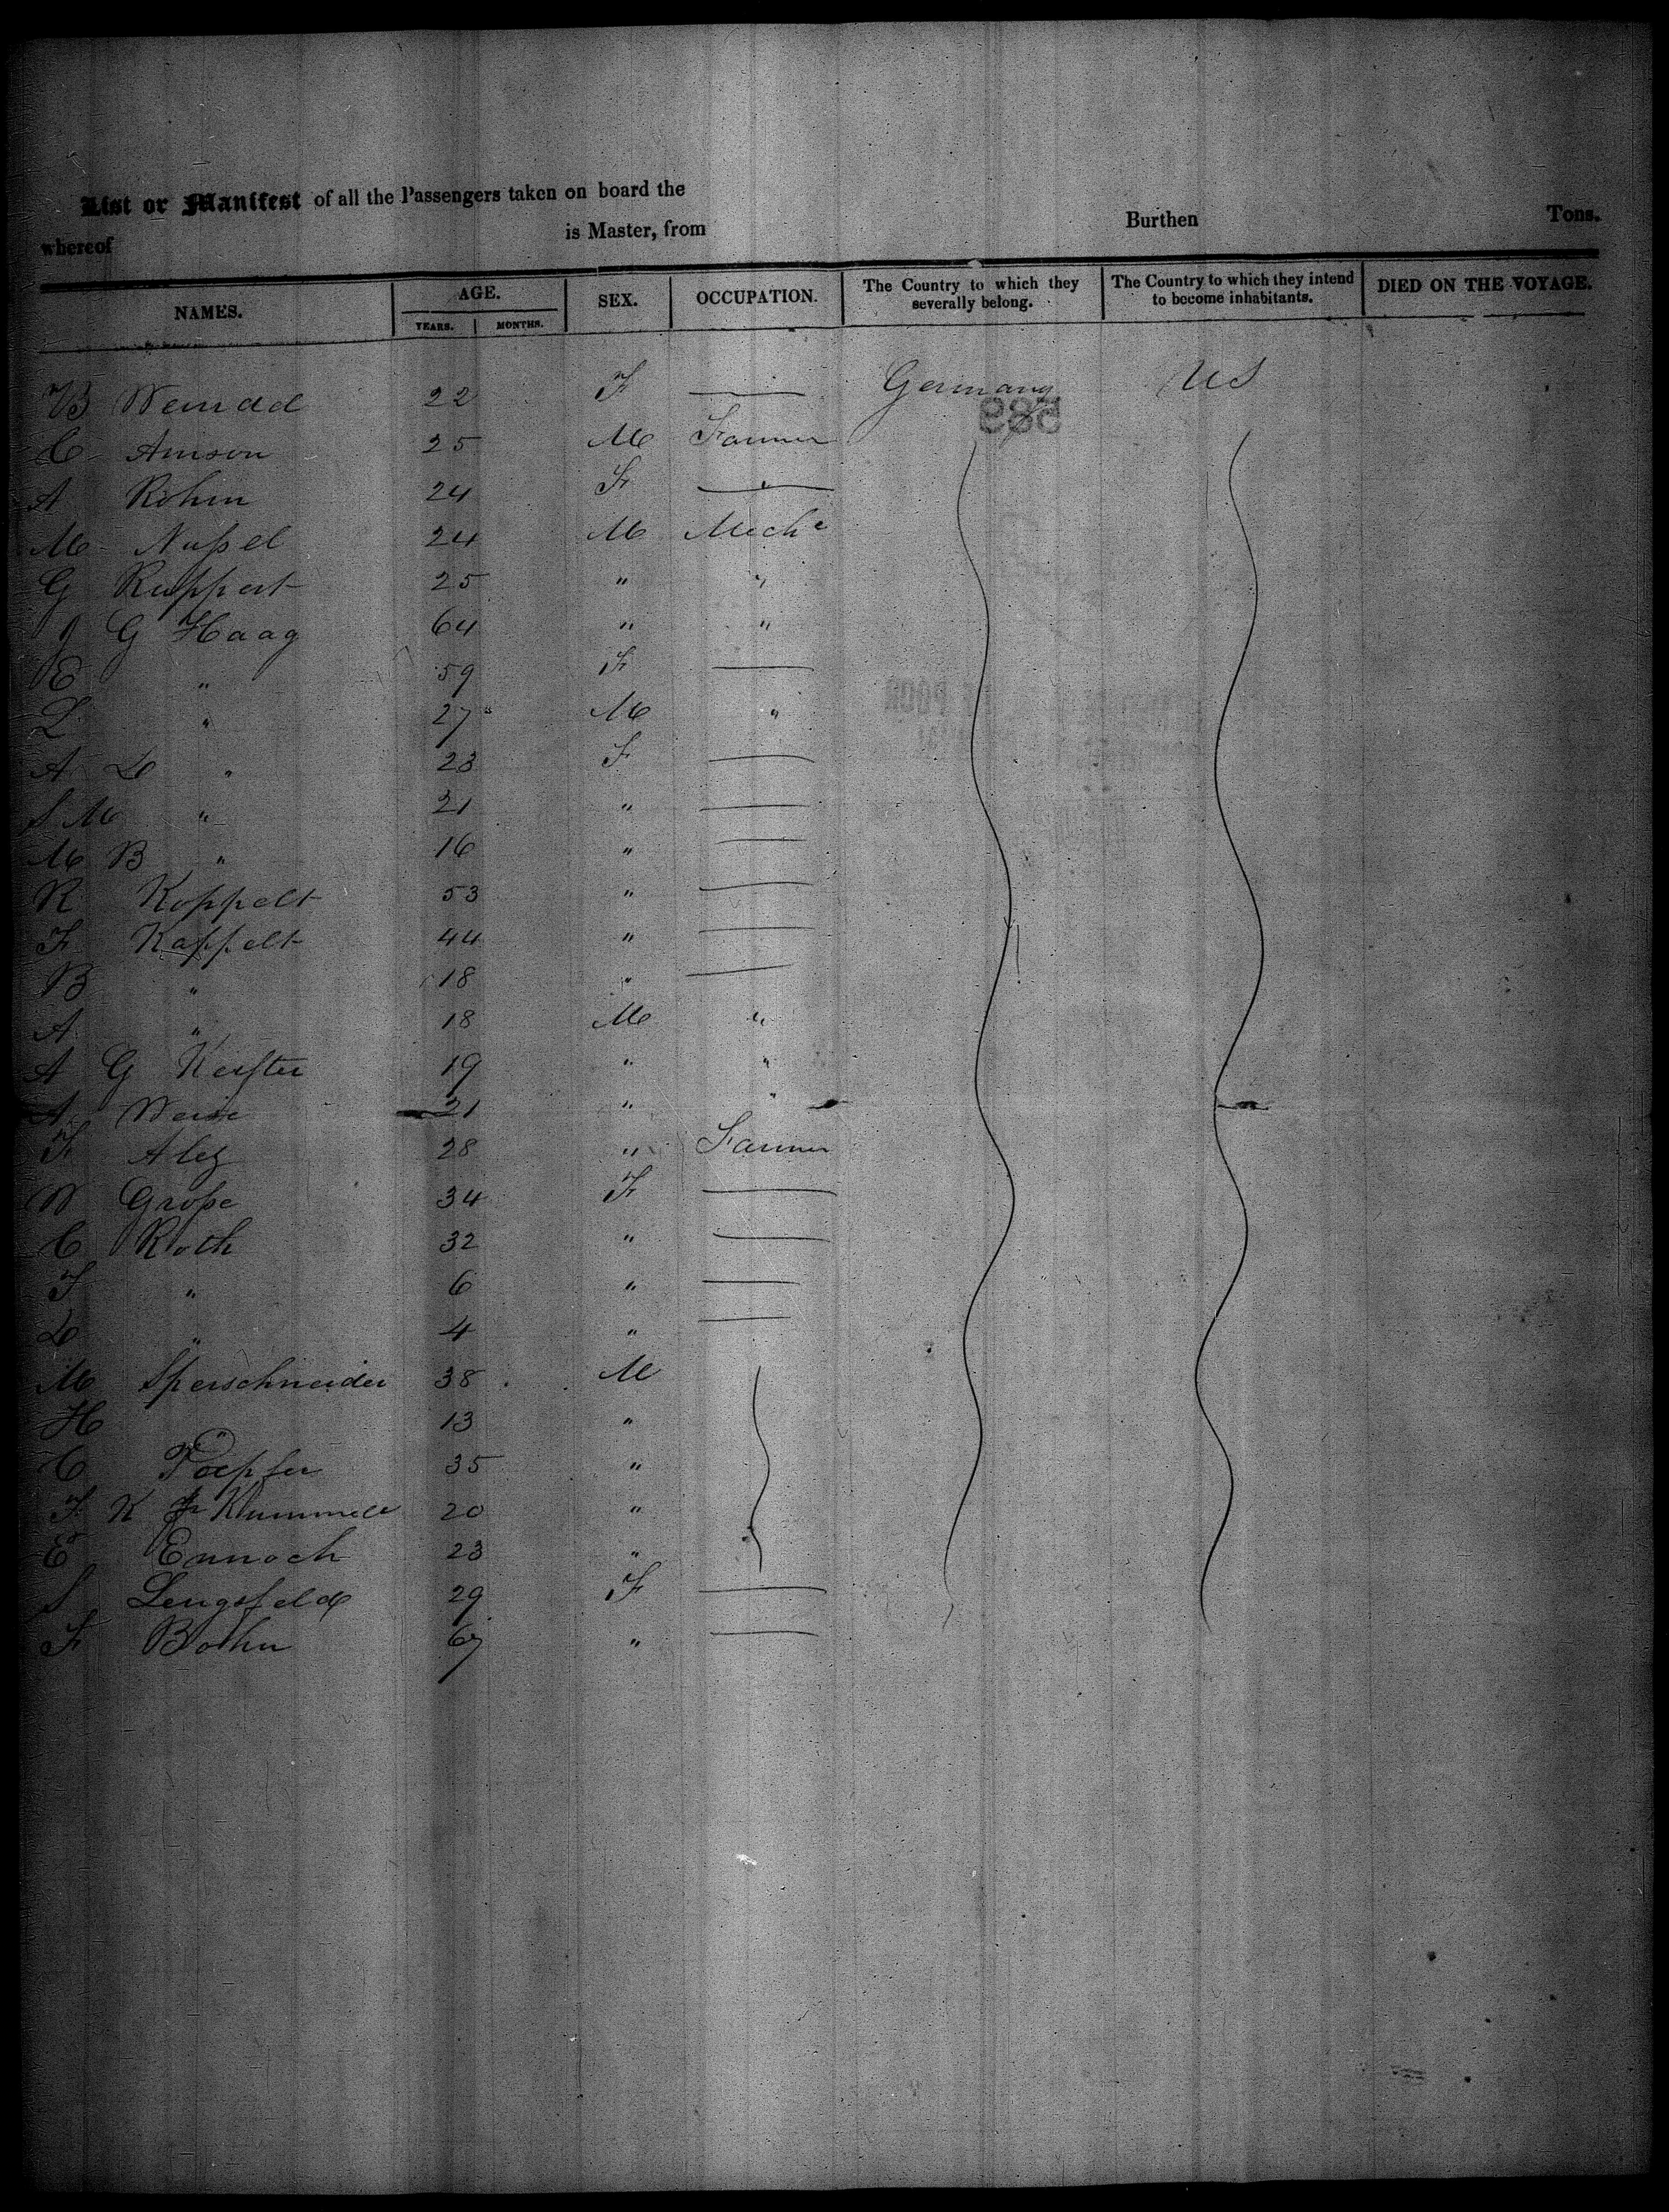 List or Manifest of all the Passengers taken on board the
whereof is Master, from Burthen Tons.
NAMES. AGE. YEARS. MONTHS. SEX. OCCUPATION. The Country to which they severally belong. The Country to which they intend to become inhabitants. DIED ON THE VOYAGE.
B 22 F — Germany US
C Amson 25 M Farmer
A Rohm 24 F —
M Nußel 24 M Mech c
G Ruppert 25 " "
J G Haag 64 " "
E " 59 F —
L " 27 M "
A L " 23 F —
S M " 21 " —
M B " 16 " —
R Koppelt 53 " —
F Kappelt 44 " —
B " 18 " —
A " 18 M "
A G 19 " "
A Weise 21 " "
F Alez 28 " Farmer
W Große 34 F —
C Roth 32 " —
F " 6 " —
L " 4 " —
M Sperschneider 38 M
H " 13 "
C Toepfer 35 "
F K Klummell 20 "
E Ennoch 23 "
S Lengsfeld 29 F —
F Bohn 67 " —